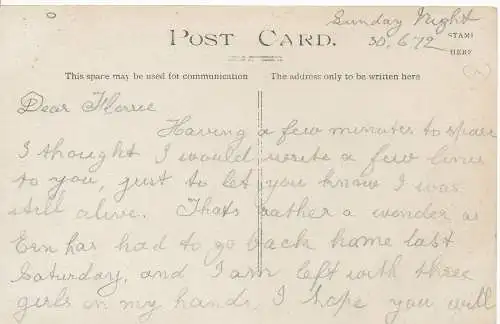 Sunday Night
POST CARD.
30.6.12
STAMP
HERE
This space may be used for communication
The address only to be written here
Dear Florrie
Having a few minutes to spare
I thought I would write a few lines
to you, just to let you know I was
still alive. Thats rather a wonder as
Ern has had to go back home last
Saturday, and I am left with three
girls on my hands. I hope you will